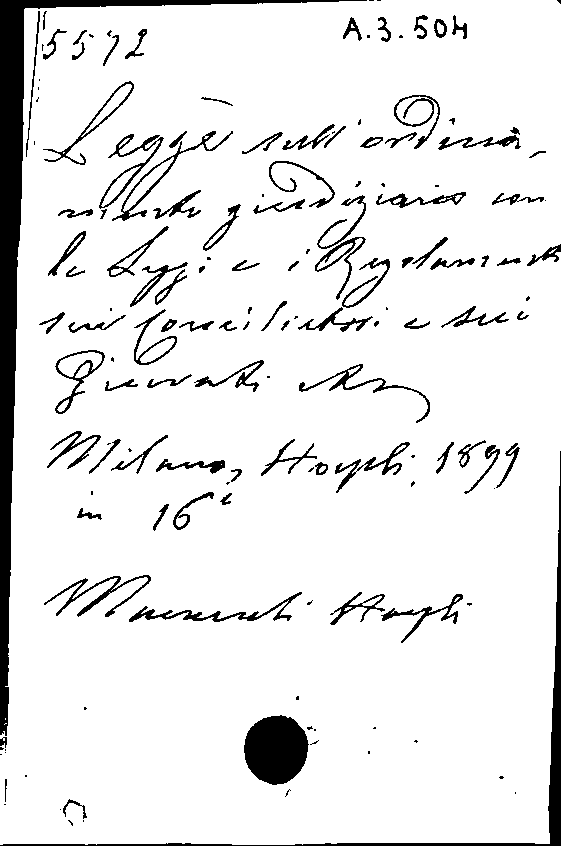 5572
A.3.504
Legge sull'ordina-
mento giudiziario con
le Leggi e i Regolamenti
sui Conciliatori e sui
Giurati
Milano, Hoepli, 1899
in 16°
Manuali Hoepli